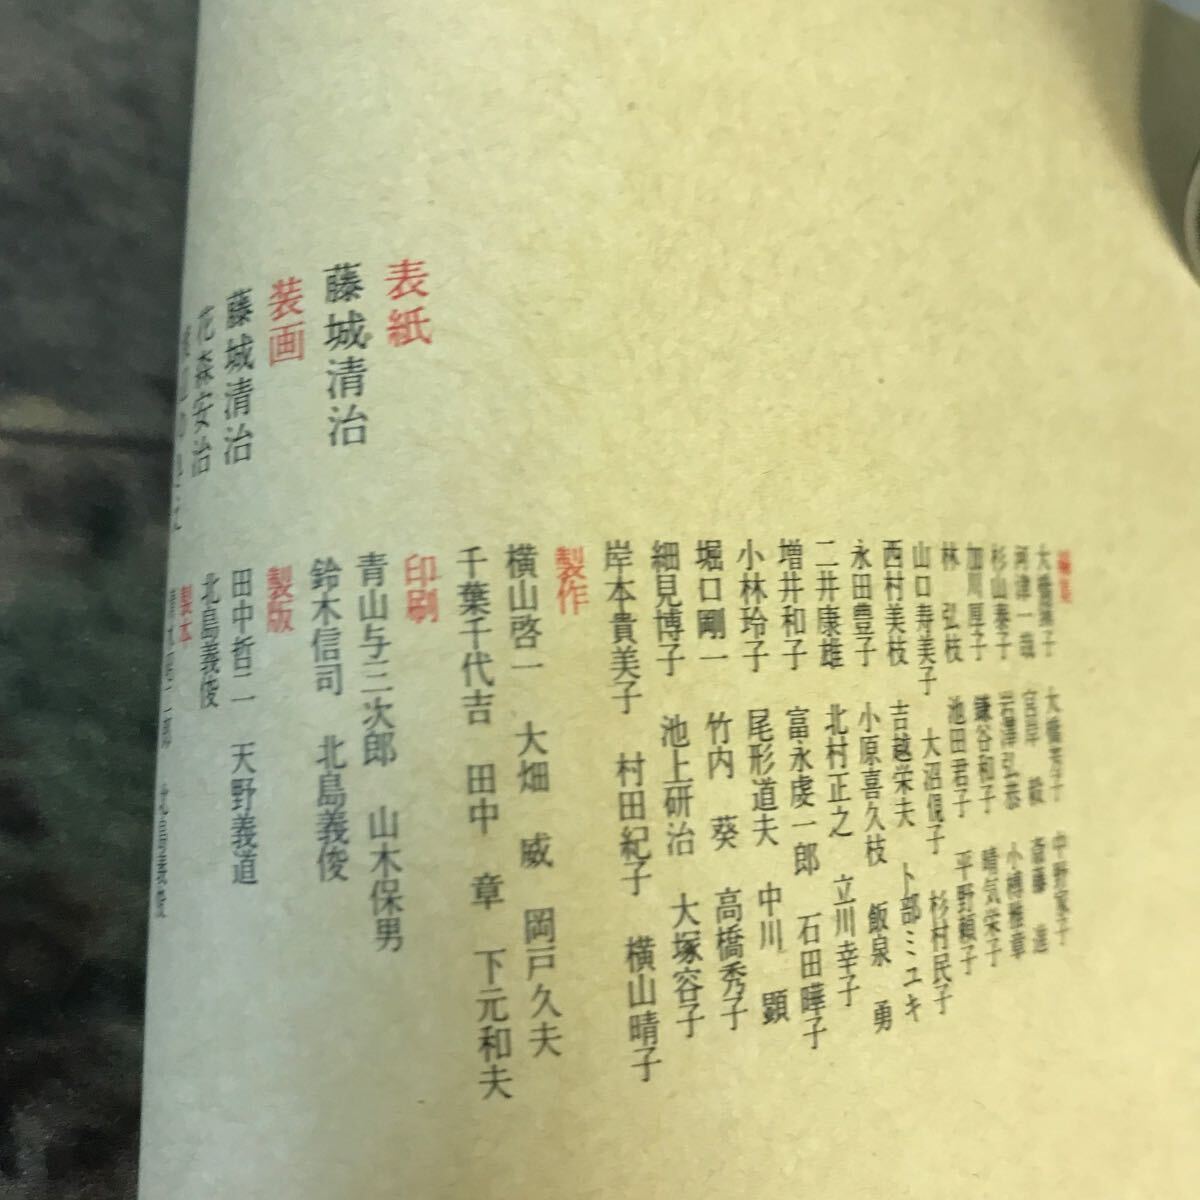 表紙
藤城清治
装画
藤城清治
花森安治
編集
大橋鎭子 大橋芳子 中野家子
河津一哉 宮岸毅 斎藤進
杉山泰子 岩澤弘恭 小榑雅章
加川厚子 鎌谷和子 晴気栄子
林弘枝 池田君子 平野頼子
山口寿美子 大沼俔子 杉村民子
西村美枝 吉越栄夫 卜部ミユキ
永田豊子 小原喜久枝 飯泉勇
二井康雄 北村正之 立川幸子
増井和子 富永虔一郎 石田曄子
小林玲子 尾形道夫 中川顕
堀口剛一 竹内葵 高橋秀子
細見博子 池上研治 大塚容子
岸本貴美子 村田紀子 横山晴子
製作
横山啓一 大畑威 岡戸久夫
千葉千代吉 田中章 下元和夫
印刷
青山与三次郎 山木保男
鈴木信司 北島義俊
製版
田中哲二 天野義道
北島義俊
製本
北島義俊